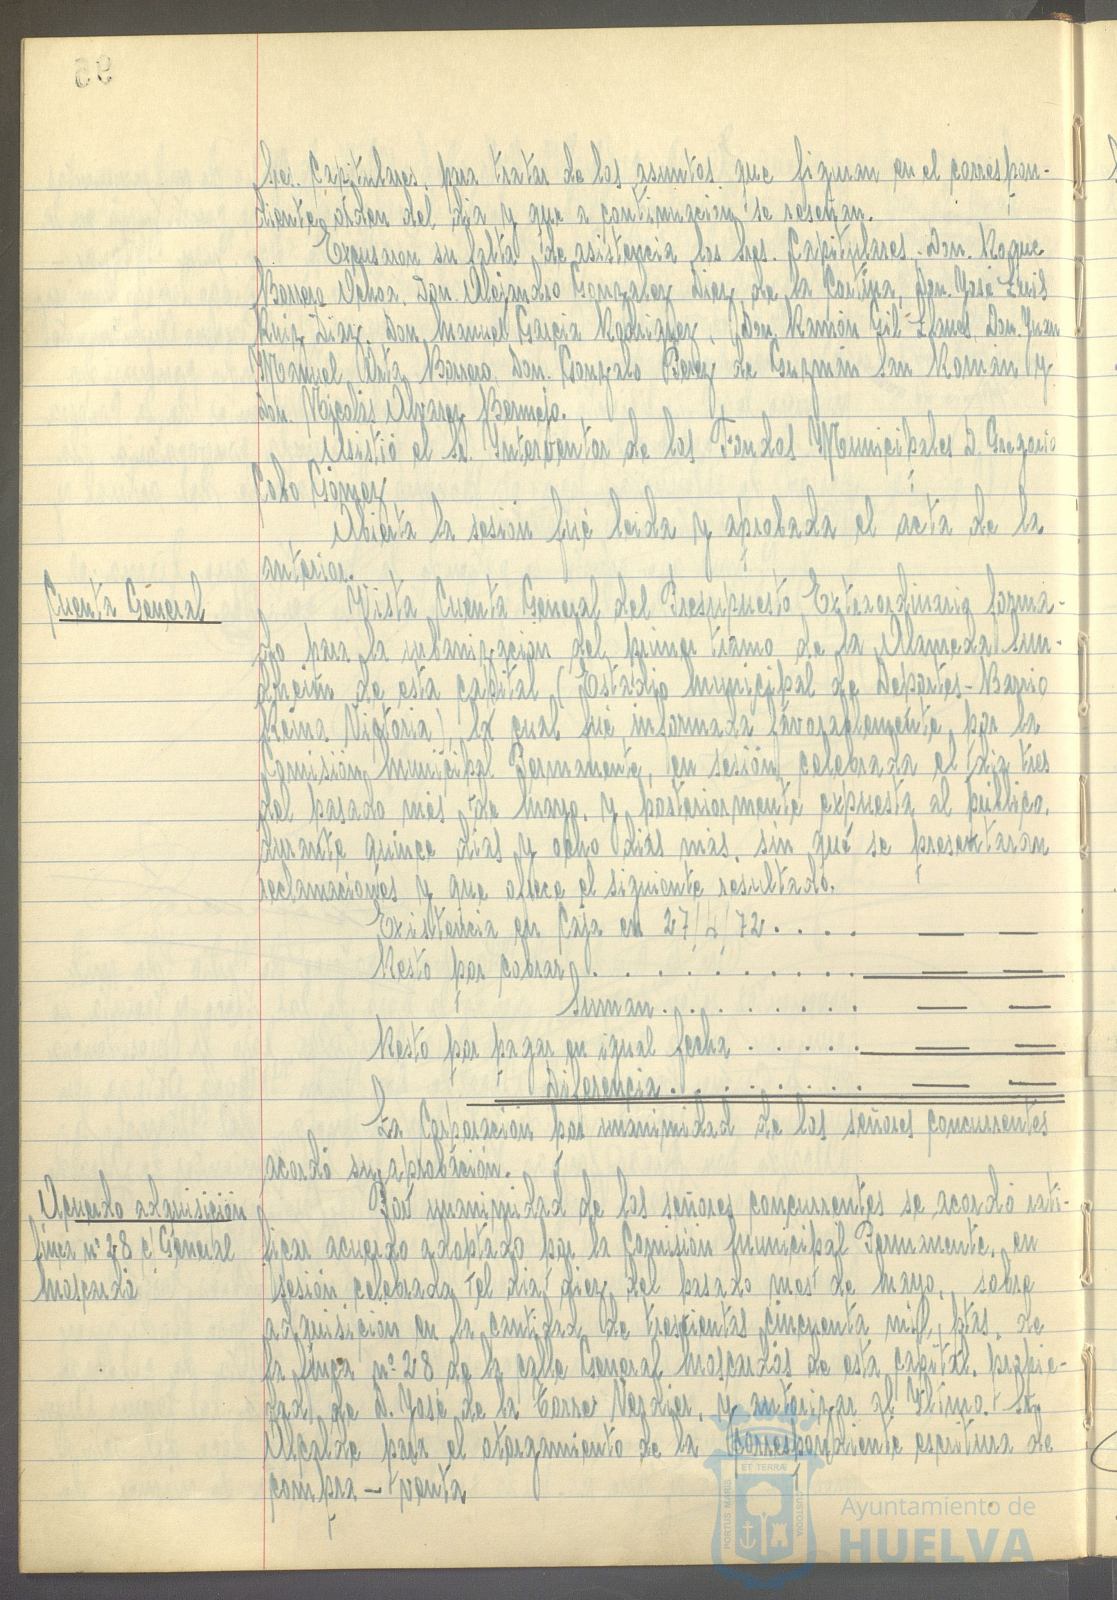 95
Sres. Capitulares, para tratar de los asuntos que figuran en el correspon-
diente orden del dia y que a continuación se reseñan.
Excusaron su falta de asistencia los Sres. Capitulares. Don Roque
Barrero Ochoa, Don Alejandro Gonzalez Diez de la Cortina, Don José Luis
Ruiz Diaz, Don Manuel Garcia Rodriguez, Don Ramón Gil Llanes, Don Juan
Manuel Arta Borrero, Don Gonzalo Perez de Guzmán San Román y
Don Nicolás Alvarez Bermejo.
Asistió el Sr. Interventor de los Fondos Municipales D. Gregorio
Cobo Gómez
Abierta la sesión fué leida y aprobada el acta de la
anterior.
Cuenta General
Vista Cuenta General del Presupuesto Extraordinario forma-
do para la urbanización del primer tramo de la Alameda Sun-
dheim de esta capital (Estadio Municipal de Deportes-Barrio
Reina Victoria), la cual fué informada favorablemente por la
Comisión Municipal Permanente, en sesión celebrada el dia tres
del pasado mes de Mayo, y posteriormente expuesta al público,
durante quince dias y ocho dias más, sin que se presentaran
reclamaciones y que ofrece el siguiente resultado.
Existencia en Caja en 27/4/72 . . . . — —
Resto por cobrar . . . . . . . . . . — —
Suman . . . . . . . . — —
Resto por pagar en igual fecha . . . . . — —
Diferencia . . . . . . . . — —
La Corporación por unanimidad de los señores concurrentes
acordó su aprobación.
Acuerdo adquisición
finca nº 28 c/ General
Moscardó
Por unanimidad de los señores concurrentes se acordó rati-
ficar acuerdo adoptado por la Comisión Municipal Permanente, en
sesión celebrada el dia diez del pasado mes de mayo, sobre
adquisición en la cantidad de trescientas cincuenta mil, ptas. de
la finca nº 28 de la calle General Moscardós de esta capital, propie-
dad de D. José de la Torre Verdier, y autorizar al Iltmo. Sr.
Alcalde para el otorgamiento de la correspondiente escritura de
compra - venta
PORTUS MARIS
ET TERRAE
CUSTODIA
Ayuntamiento de
HUELVA